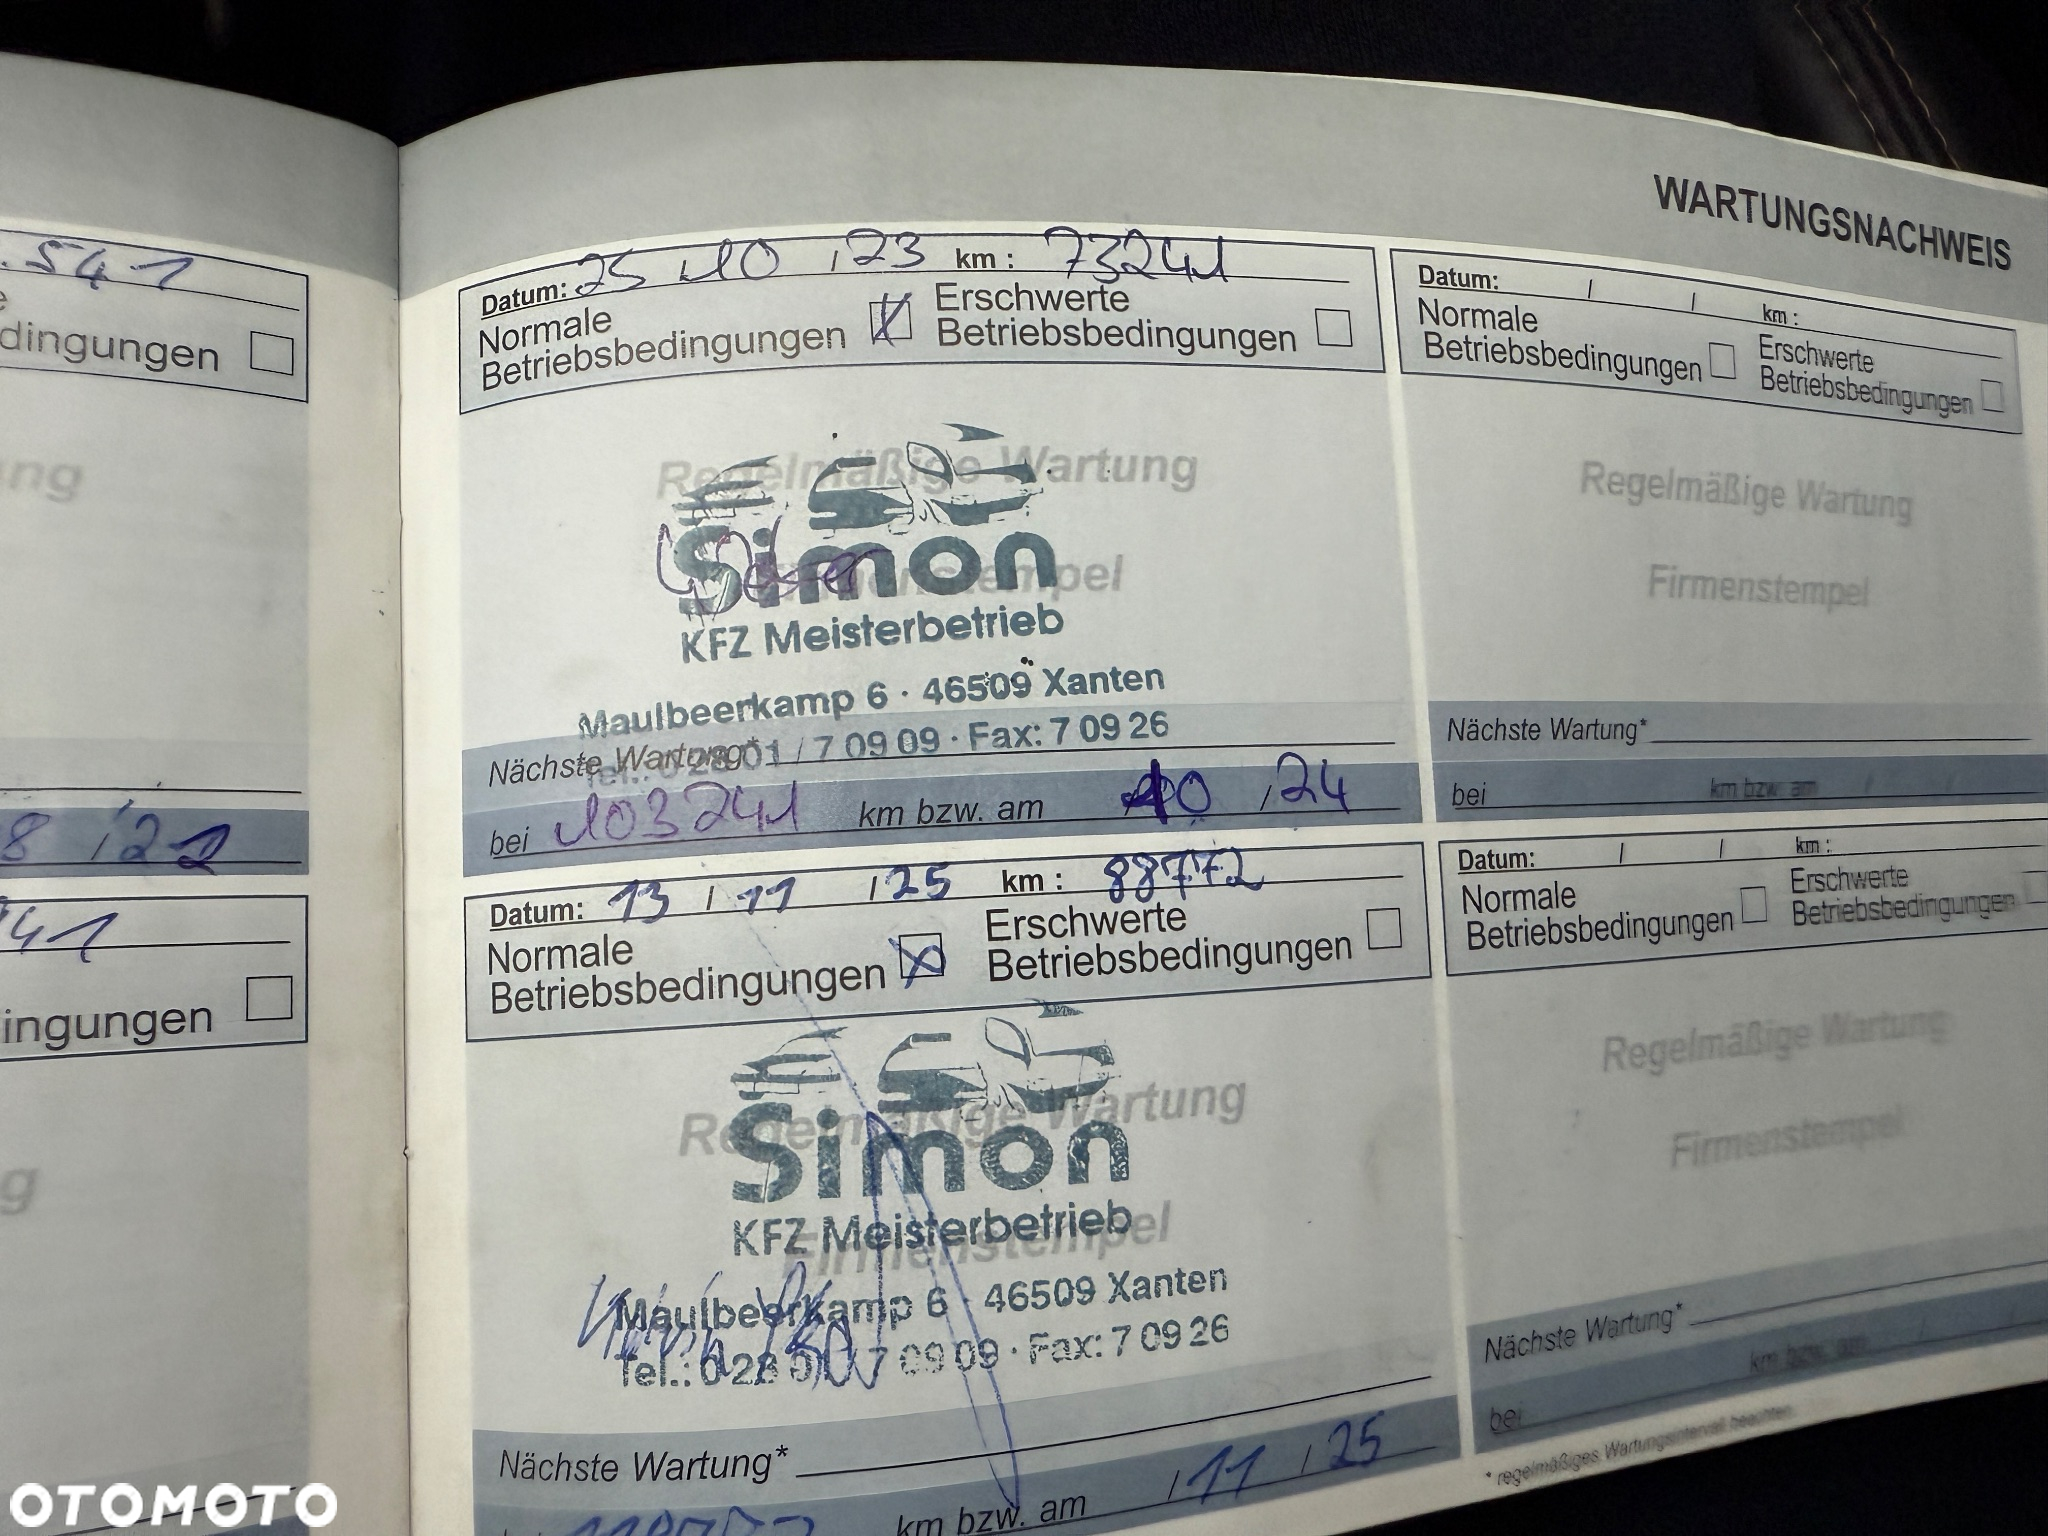 .541
dingungen
ng
8 / 22
41
ingungen
g
WARTUNGSNACHWEIS
Datum: 25 / 10 / 23 km : 73241
Normale Betriebsbedingungen Erschwerte Betriebsbedingungen
Regelmäßige Wartung
Firmenstempel
Simon
KFZ Meisterbetrieb
Maulbeerkamp 6 · 46509 Xanten
Tel.: 0 28 01 / 7 09 09 · Fax: 7 09 26
Nächste Wartung*
bei 103241 km bzw. am 10 / 24
Datum: 13 / 11 / 25 km : 88772
Normale Betriebsbedingungen Erschwerte Betriebsbedingungen
Regelmäßige Wartung
Firmenstempel
Simon
KFZ Meisterbetrieb
Maulbeerkamp 6 · 46509 Xanten
Tel.: 0 28 01 / 7 09 09 · Fax: 7 09 26
Nächste Wartung*
km bzw. am / 11 / 25
Datum: / / km :
Normale Betriebsbedingungen Erschwerte Betriebsbedingungen
Regelmäßige Wartung
Firmenstempel
Nächste Wartung*
bei km bzw. am / /
Datum: / / km :
Normale Betriebsbedingungen Erschwerte Betriebsbedingungen
Regelmäßige Wartung
Firmenstempel
Nächste Wartung*
bei km bzw. am
* regelmäßiges Wartungsintervall beachten
OTOMOTO